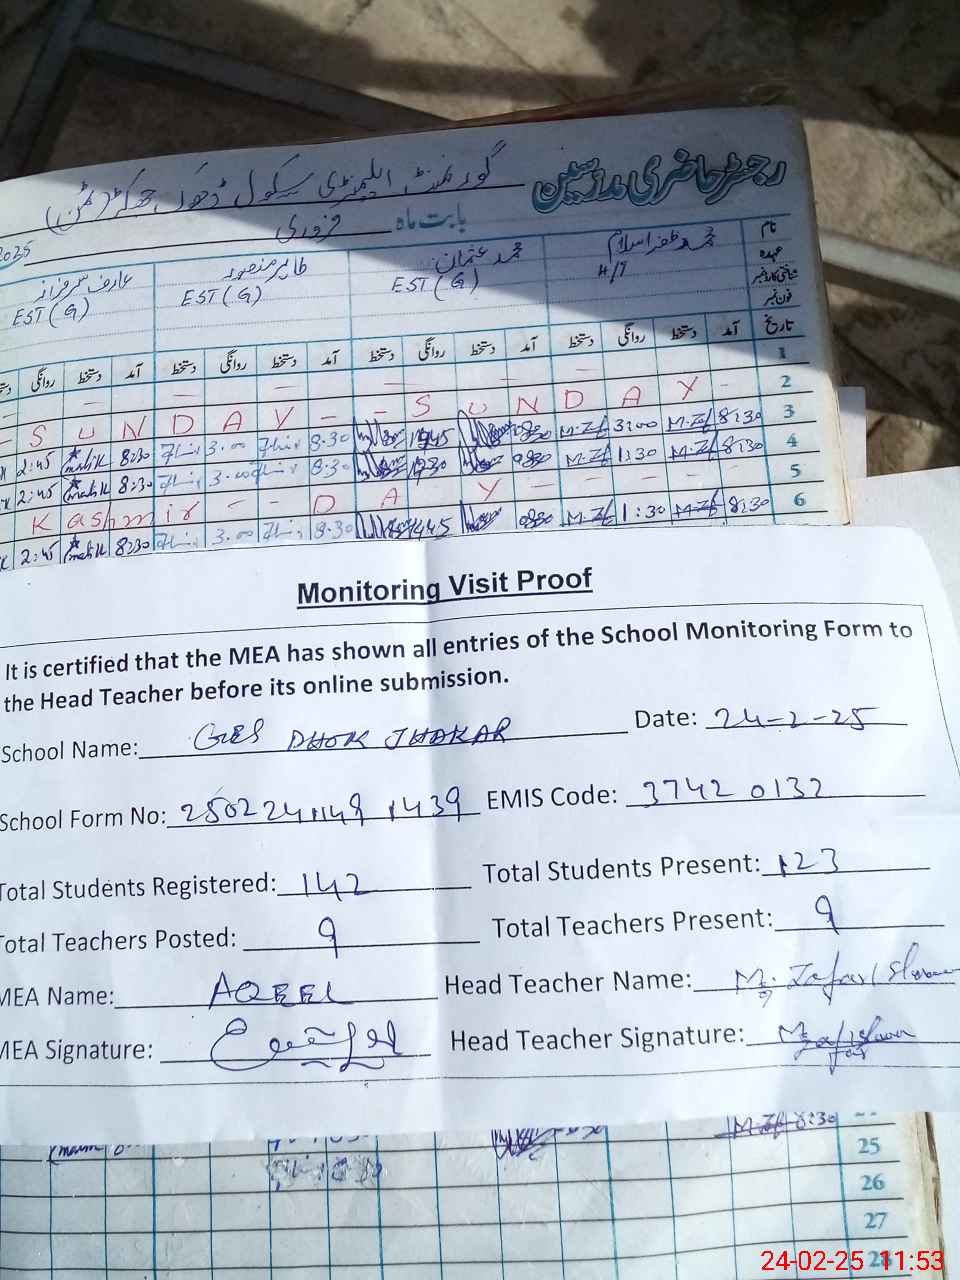 رجسٹر حاضری مدرسین گورنمنٹ ایلیمنٹری سکول ڈھوک جھکڑ (ٹمن)
بابت ماہ فروری 2025
نام محمد ظفر اسلام محمد عثمان طاہر منصور عارف سرفراز
عہدہ H/T EST (G) EST (G) EST (G)
شناختی کارڈ نمبر
فون نمبر
تاریخ آمد دستخط روانگی دستخط آمد دستخط روانگی دستخط آمد دستخط روانگی دستخط آمد دستخط روانگی
1
2 S U N D A Y S U N D A Y
3 8:30 M.Zf 3:00 M.Zf 8.30 3.00 8:30 2:45
4 8:30 M.Zf 1:30 M.Zf 8.30 3.00 8:30 2:45
5 Kashmir D A Y
6 8:30 M.Zf 1:30 M.Zf 8.30 3.00 8:30 2:45
Monitoring Visit Proof
It is certified that the MEA has shown all entries of the School Monitoring Form to
the Head Teacher before its online submission.
School Name: GES DHOK JHAKAR Date: 24-2-25
School Form No: EMIS Code: 37420132
Total Students Registered: 142 Total Students Present: 123
Total Teachers Posted: 9 Total Teachers Present: 9
MEA Name: AQEEL Head Teacher Name: M. Zafar Islam
MEA Signature: Head Teacher Signature:
M.Zf 8:30
25
26
27
28
24-02-25 11:53